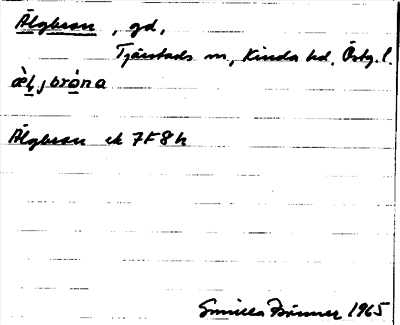 Älgbron, gd,
Tjärstads sn, Kinda hd, Östg.l.
æ̀ljbròna
Älgbron ek 7F8h
Gunilla Brinner 1965